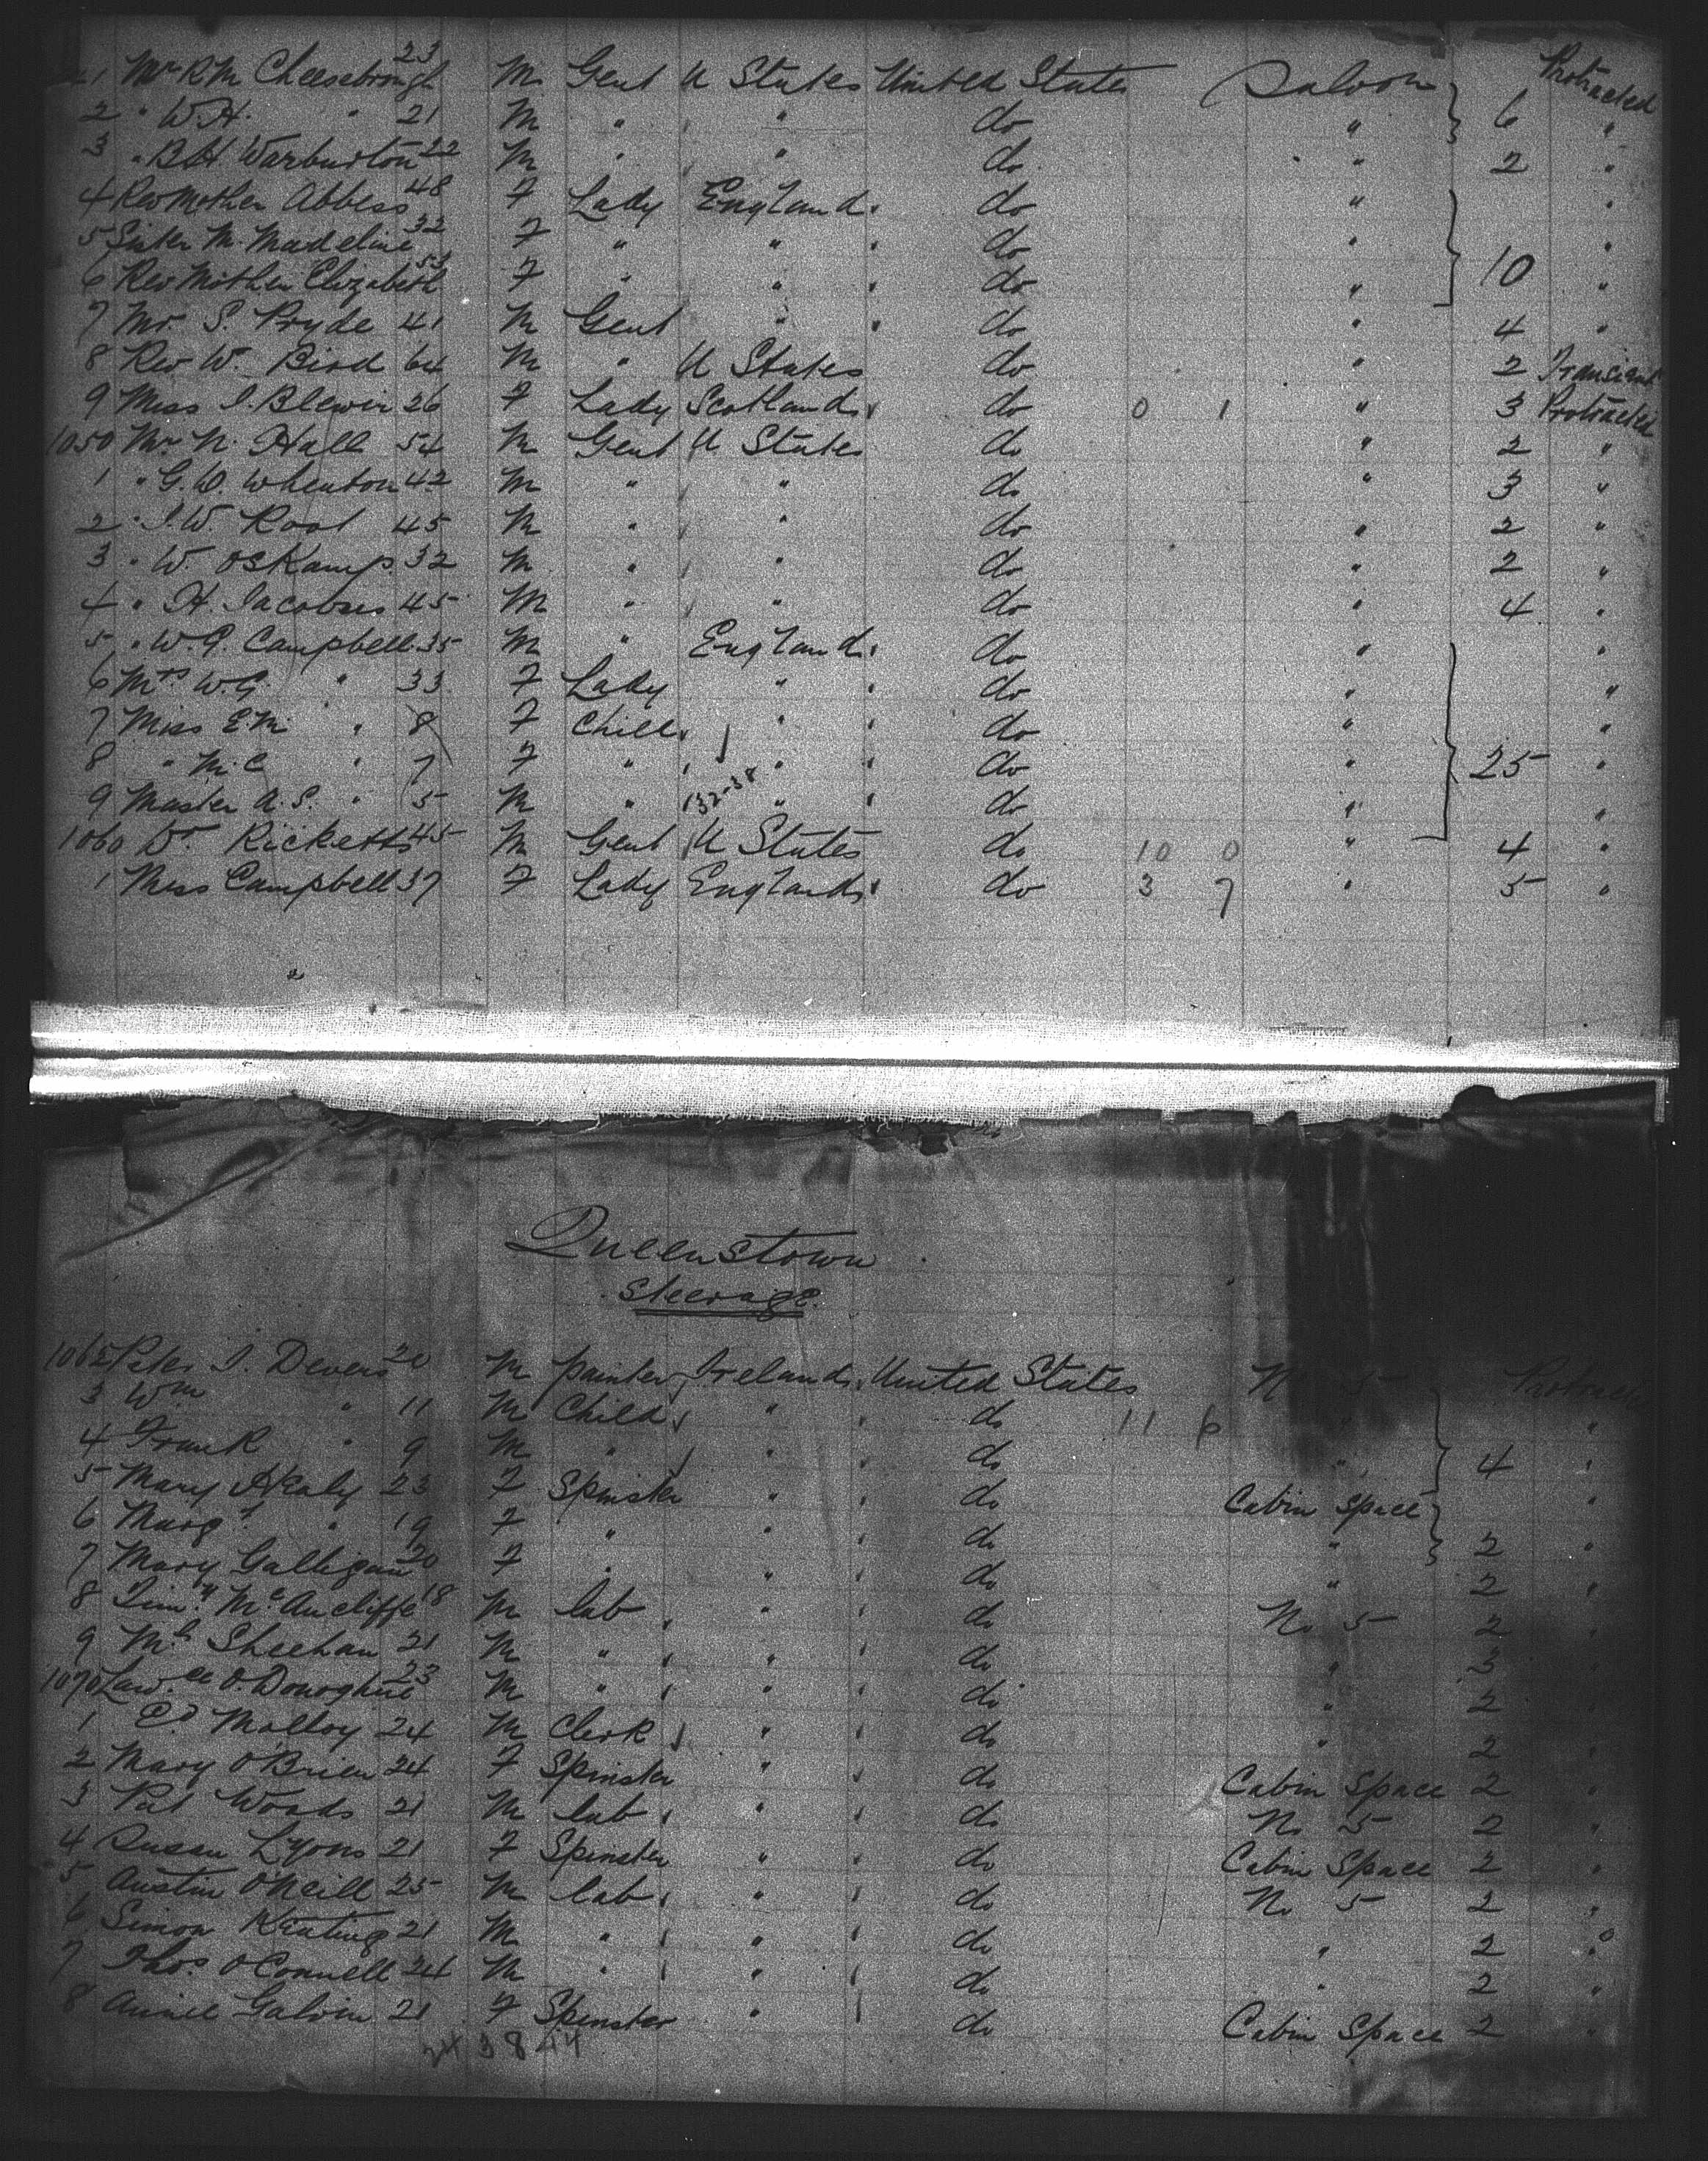 21 Mr R.M. Cheesebrough 23 M Gent U States United States Saloon Protracted
2 " W.H. " 21 M " " do " 6 "
3 " B.H. Warburton 22 M " " do " 2 "
4 Rev Mother Abbess 48 F Lady England do " "
5 Sister M. Madeline 32 F " " do " "
6 Rev Mother Elizabeth 53 F " " do " 10 "
7 Mr. S. Pryde 41 M Gent " do " 4 "
8 Rev W. Bird 64 M " U States do " 2 Transient
9 Miss I. Blewir 26 F Lady Scotland do 0 1 " 3 Protracted
1050 Mr N. Hall 54 M Gent U States do " 2 "
1 " G.W. Wheaton 42 M " " do " 3 "
2 " J.W. Root 45 M " " do " 2 "
3 " W. Oskamp 32 M " " do " 2 "
4 " H. Jacobus 45 M " " do " 4 "
5 " W.G. Campbell 35 M " England do " "
6 Mrs W.G. " 33 F Lady " do " "
7 Miss E.M. " 8 F Child " do " "
8 " M.C. " 7 F " " do " 25 "
9 Master A.S. " 5 M " 132-38 " do " "
1060 Dr. Ricketts 45 M Gent U States do 10 0 " 4 "
1 Miss Campbell 37 F Lady England do 3 7 " 5 "
Queenstown
Steerage
1062 Peter J. Devers 20 M painter Ireland United States No 5 Protracted
3 Wm " 11 M Child " do 11 6 " "
4 Frank " 9 M " " do " 4 "
5 Mary Healy 23 F Spinster " do Cabin Space "
6 Margt " 19 F " " do " 2 "
7 Mary Galligan 20 F " " do " 2 "
8 Timy McAucliffe 18 M lab " do No 5 2 "
9 Ml Sheehan 21 M " " do " 3 "
1070 Lawce O'Donoghue 23 M " " do " 2 "
1 Ed Molloy 24 M Clerk " do " 2 "
2 Mary O'Brien 24 F Spinster " do Cabin Space 2 "
3 Pat Woods 21 M lab " do No 5 2 "
4 Susan Lyons 21 F Spinster " do Cabin Space 2 "
5 Austin O'Neill 25 M lab " do No 5 2 "
6 Simon Keating 21 M " " do " 2 "
7 Thos. O'Connell 24 M " " do " 2 "
8 Annie Galvin 21 F Spinster " do Cabin Space 2 "